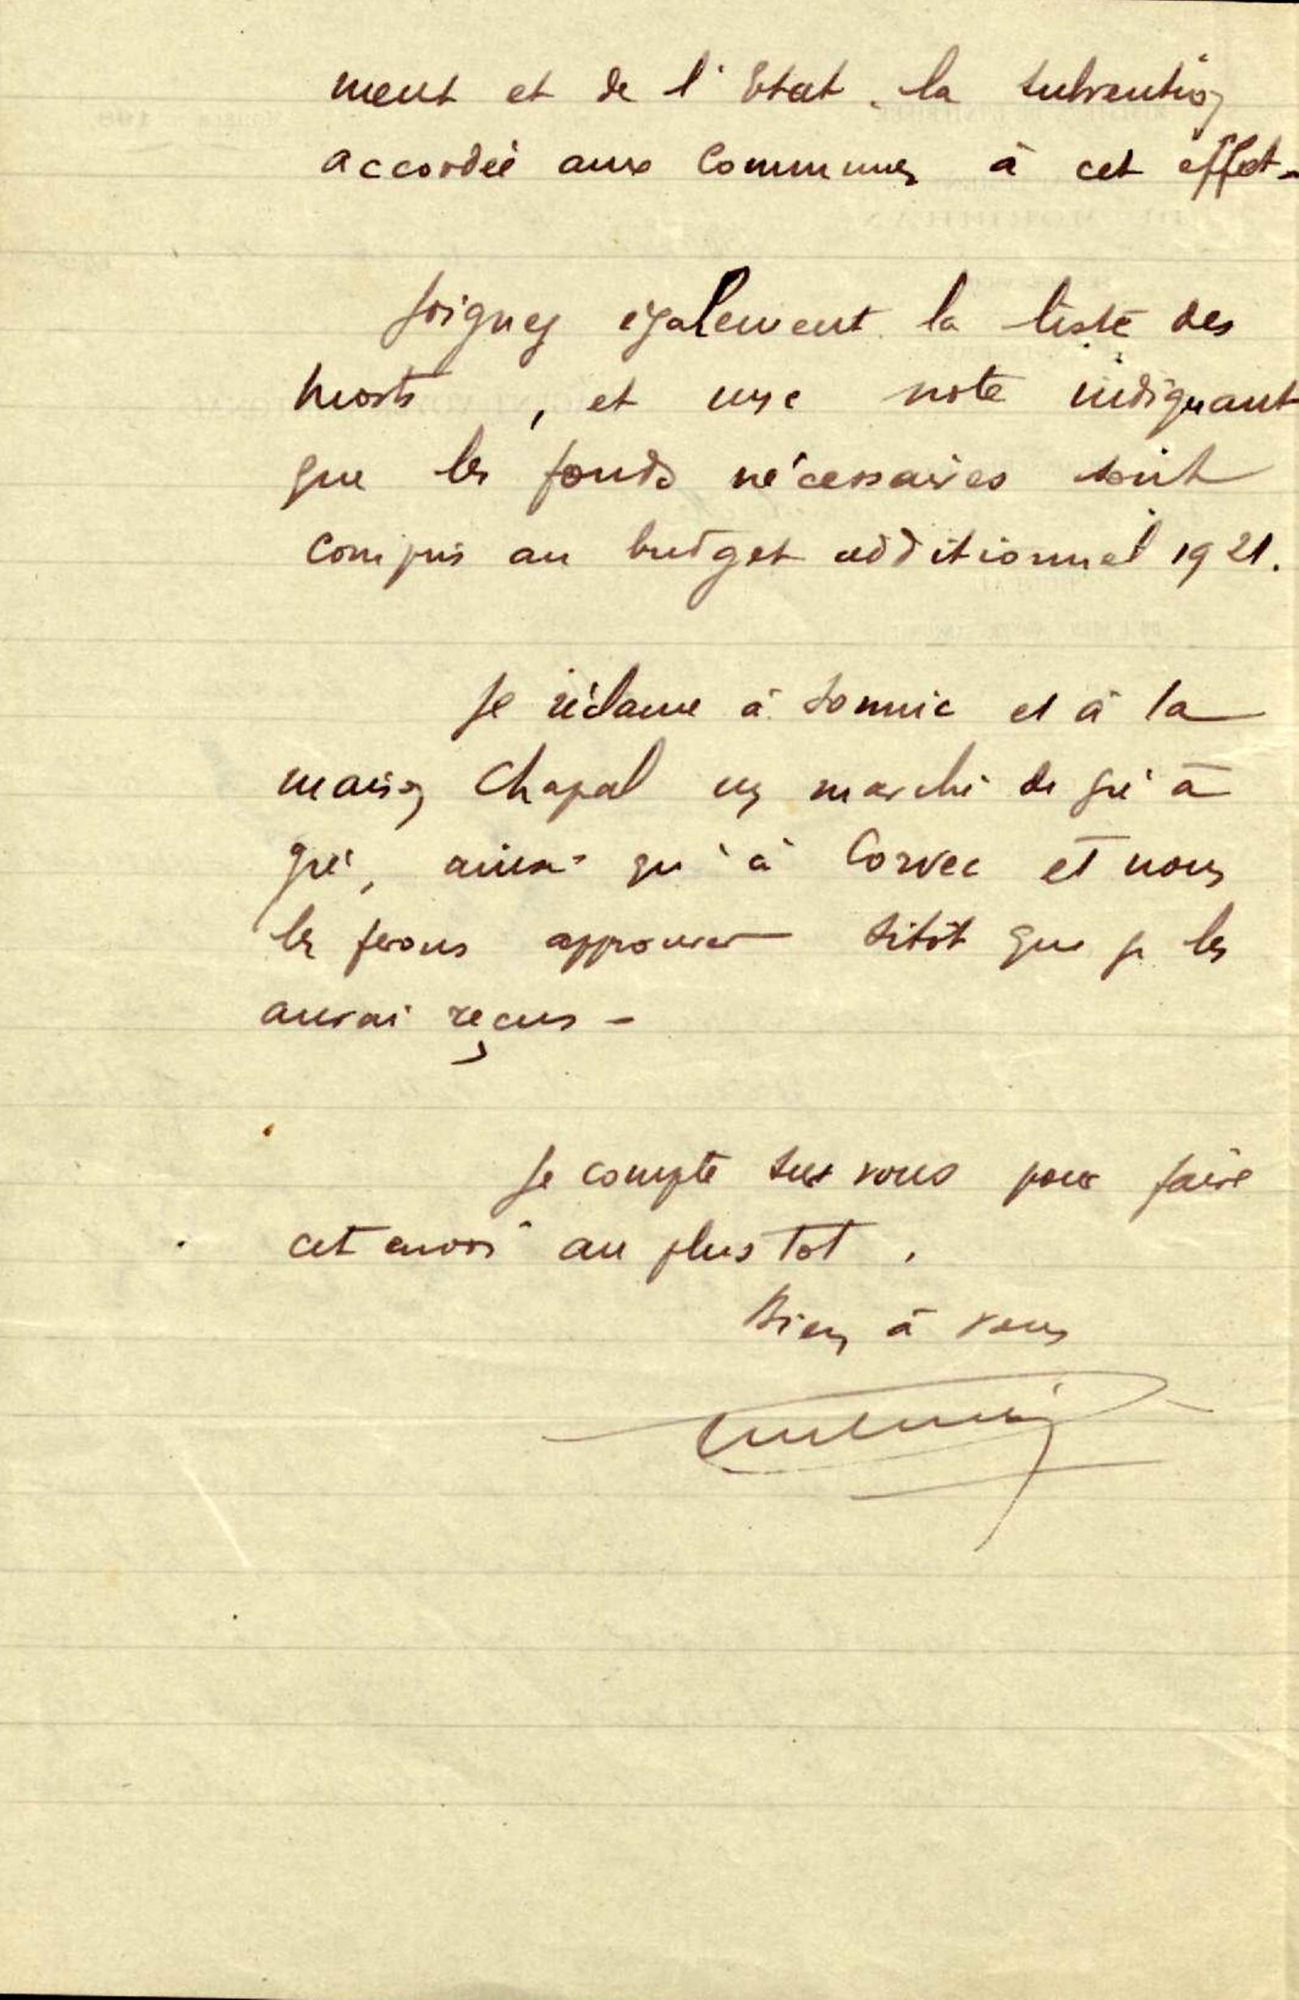 ment et de l'Etat, la subvention
accordée aux Communes à cet effet -
Joignez également la liste des
morts, et une note indiquant
que les fonds nécessaires sont
compris au budget additionnel 1921.
Je réclame à Sonnic et à la
maison Chapal un marché de gré à
gré, ainsi qu'à Corvec et nous
les ferons approuver sitôt que je les
aurai reçus -
Je compte sur vous pour faire
cet envoi au plus tot.
Bien à vous